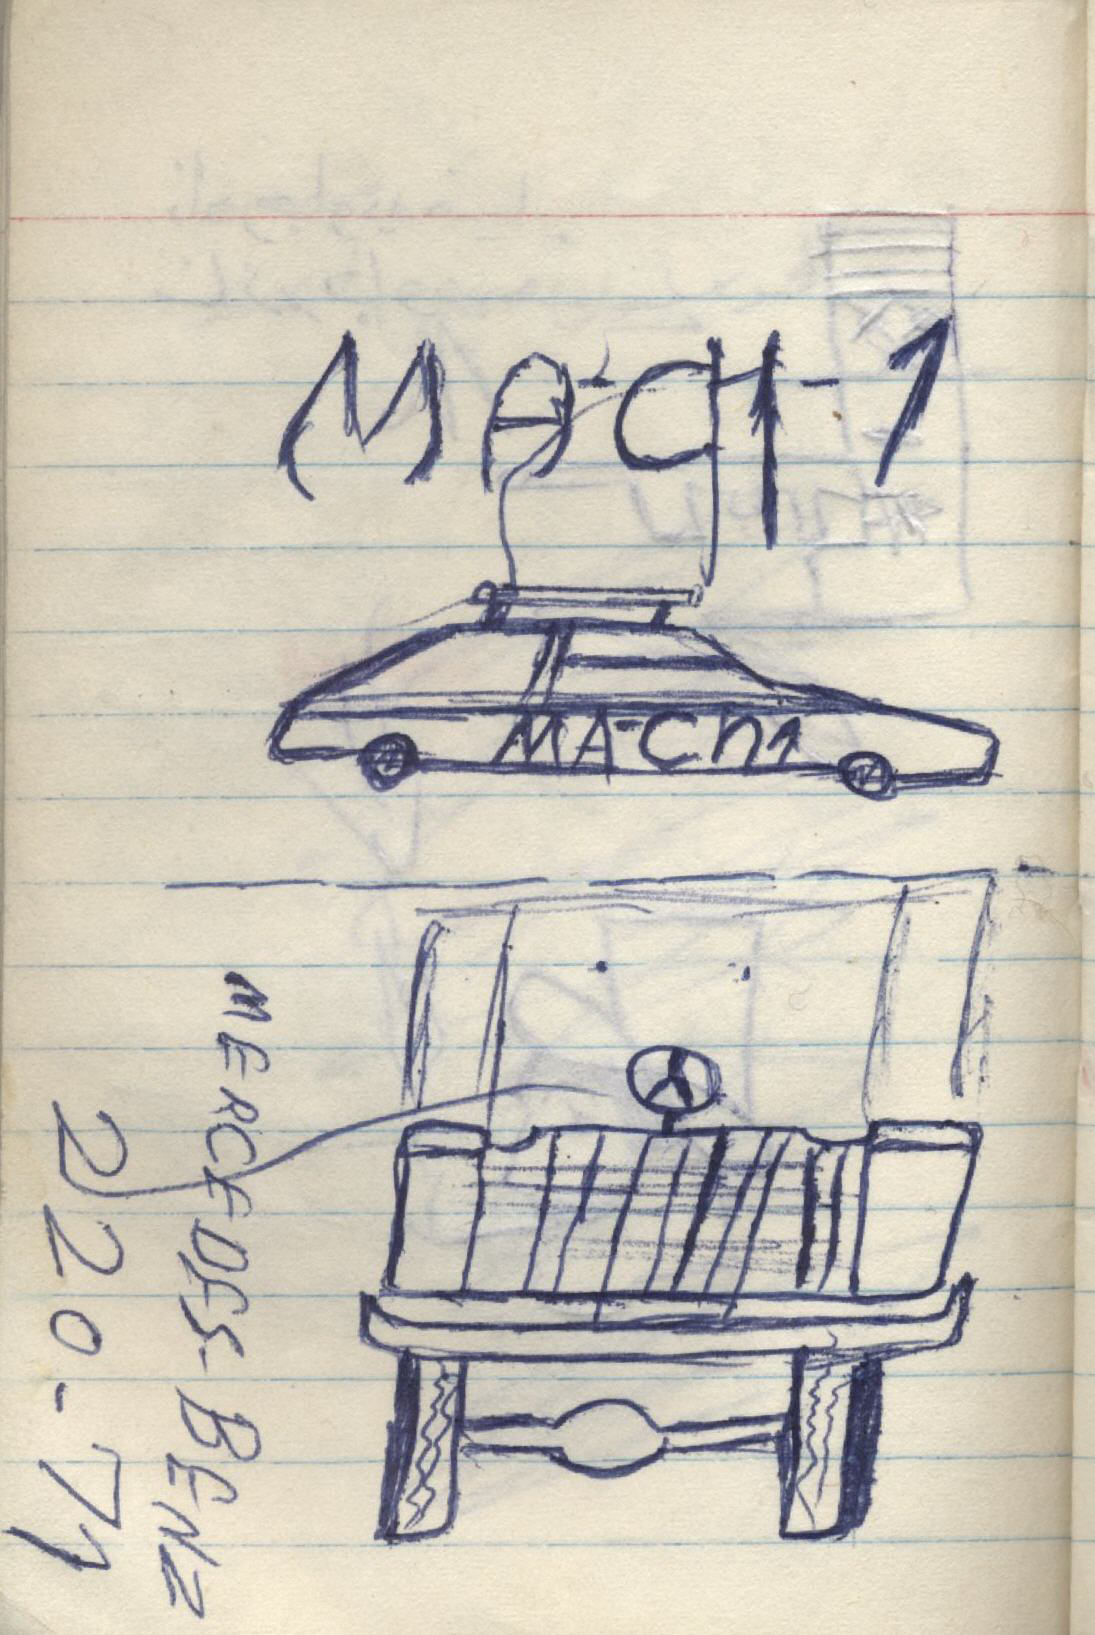 MACH-1
MACh1
MERCEDES-BENZ
220-71